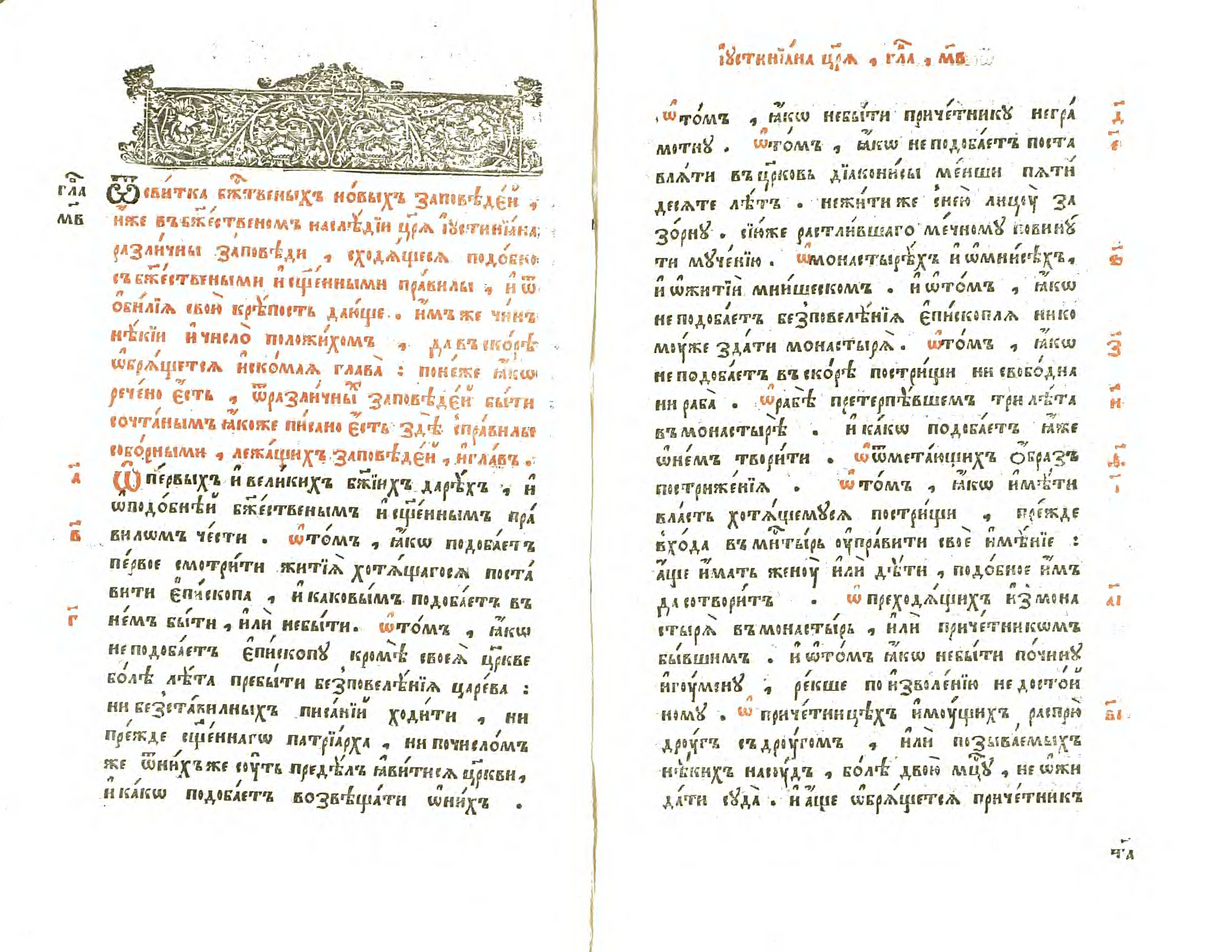 гла
мв
Ѿсвитка бжтвеныхъ новыхъ заповѣдей ,
иже въбжественомъ наслѣдїи цря їустинїана
различны заповѣди , сходящеся подобно
събжествеными исщенными правилы , иѿ
обилїя свою крѣпость дающе . имъже чинъ
нѣкїи ичисло положихомъ , давъскорѣ
ѡбрящется искомая глава : понеже ꙗкѡ
речено есть , ѿразличны заповѣдей быти
сочтанымъ ꙗкоже писано есть здѣ справилы
соборными , лежащихъ заповѣдей , иглавъ .
а
Ѡпервыхъ ивеликихъ бжїихъ дарѣхъ , и
ѡподобнѣй бжественымъ исщеннымъ пра
в
вилѡмъ чести . ѡтомъ , ꙗкѡ подобаетъ
первое смотрити житїя хотящагося поста
вити епископа , икаковымъ подобаетъ въ
г
немъ быти , или небыти . ѡтомъ , ꙗкѡ
неподобаетъ епископу кромѣ своея цркве
болѣ лѣта пребыти безповелѣнїя царева :
ни безставилныхъ писанїй ходити , ни
прежде сщеннагѡ патрїарха , ни почислѡмъ
же ѿнихъже соуть предѣлъ ꙗвитися цркви ,
икакѡ подобаетъ возвѣщати ѡнихъ .
їустинїана цря , гла , мв
ѡтомъ , ꙗкѡ небыти причетнику негра
д
мотну . ѡтомъ , ꙗкѡ неподобаетъ поста
е
вляти въцрковь дїаконисы менши пяти
десяте лѣтъ . нежитиже снею лицоу за
зорну . сїиже растлившаго мечному повину
ти мученїю . ѡмонастырѣхъ иѡмнисѣхъ ,
ѕ
иѡжитїи мнишескомъ . иѡтомъ , ꙗкѡ
неподобаетъ безповелѣнїя епископля нико
моуже здати монастыря . ѡтомъ , ꙗкѡ
з
неподобаетъ въскорѣ пострищи ни свободна
ни раба . ѡрабѣ претерпѣвшемъ трилѣта
и
въмонастырѣ . икакѡ подобаетъ ꙗже
ѡнемъ творити . ѡѿметающихъ образъ
ѳ
постриженїя . ѡтомъ , ꙗкѡ имѣти
і
власть хотящемуся пострищи , прежде
входа въмнтырь оуправити свое имѣнїе :
аще имать женоу или дѣти , подобное имъ
да сотворитъ . ѡ преходящихъ измона
аі
стыря въмонастырь , или причетникѡмъ
бывшимъ . иѡтомъ ꙗкѡ небыти почину
игоумену , рекше поизволенїю недостой
ному . ѡ причетницѣхъ имоущихъ распрю
ві
дроугъ съдроугомъ , или позываемыхъ
нѣкихъ насоудъ , болѣ двою мцу , не ѡжи
дати суда . иаще ѡбрящется причетникъ
ча